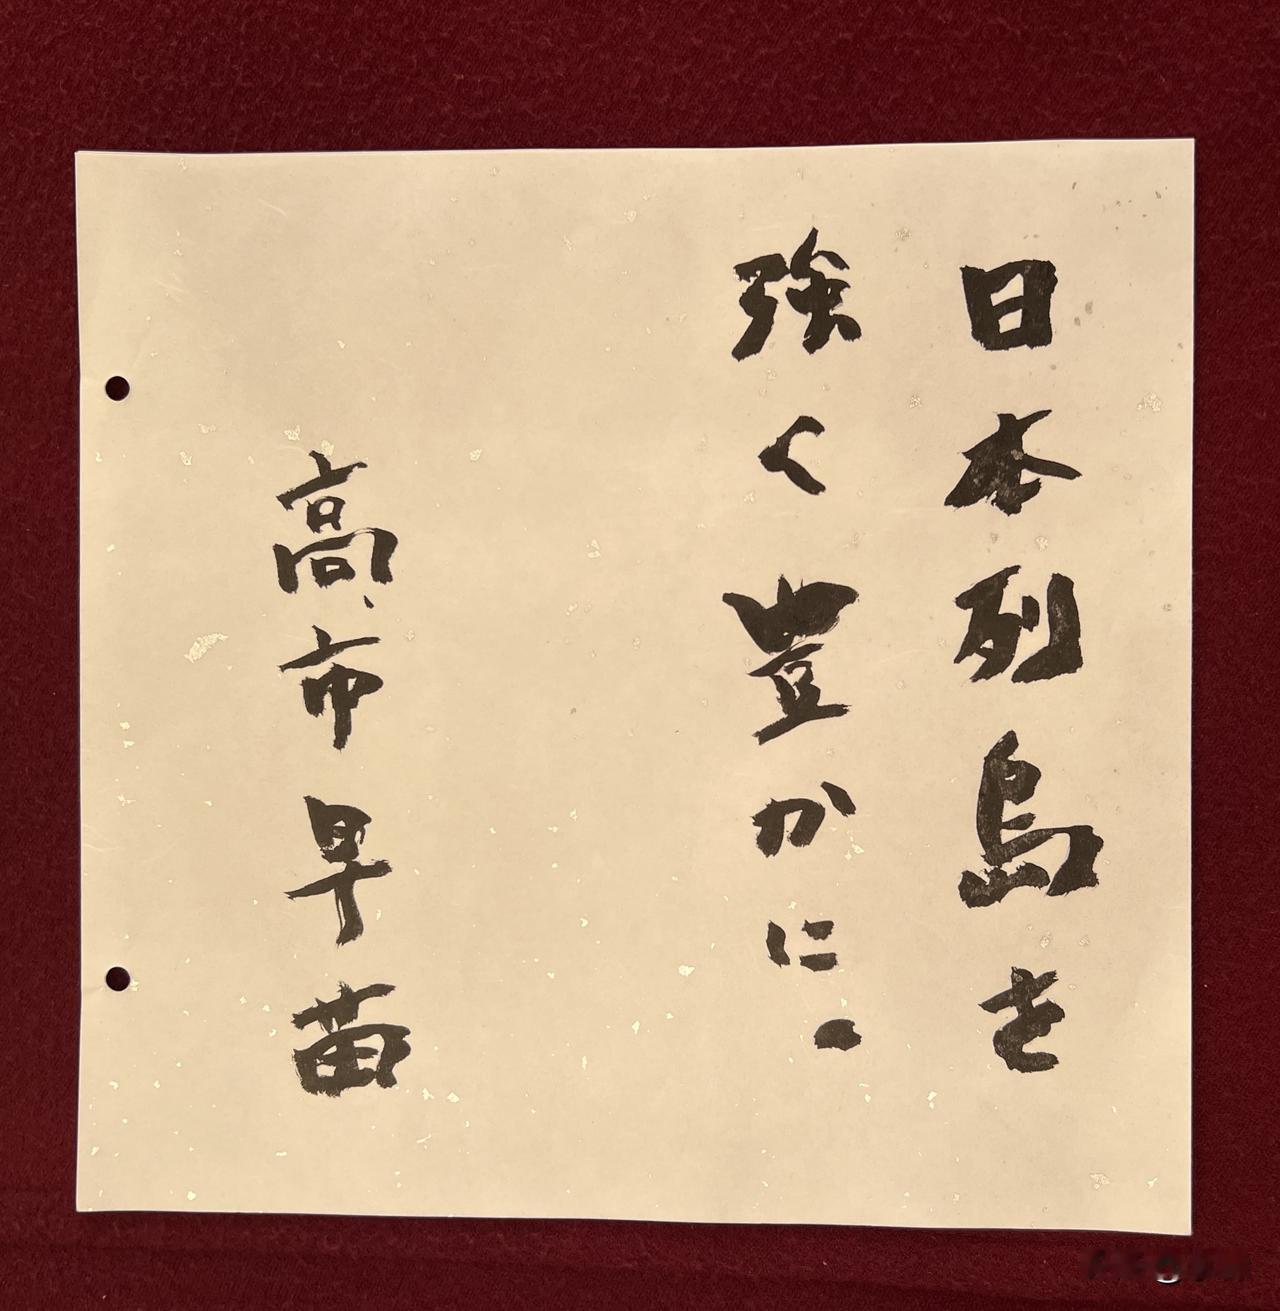 日本列島を
強く豊かに。
高市早苗